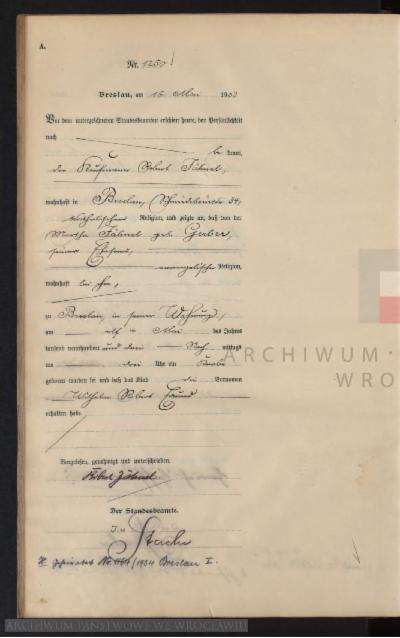 A.
Nr. 1250
Breslau, am 15. Mai 1903
Vor dem unterzeichneten Standesbeamten erschien heute, der Persönlichkeit
nach
be kannt,
der Kaufmann Robert Jähnel,
wohnhaft in Breslau, 34,
katholischer Religion, und zeigte an, daß von der
Martha Jähnel geb.
seiner Ehefrau,
evangelischer Religion,
wohnhaft bei ihm,
zu Breslau, in seiner Wohnung,
am elf ten Mai des Jahres
tausend neunhundert und drei Nach mittags
um drei Uhr ein Knabe
geboren worden sei und daß das Kind die Vornamen
Wilhelm Robert
erhalten habe.
Vorgelesen, genehmigt und unterschrieben.
Robert Jähnel
Der Standesbeamte.
In
Stache
Nr. 1934 Breslau I.
ARCHIWUM
WRO
ARCHIWUM PAŃSTWOWE WE WROCŁAWIU